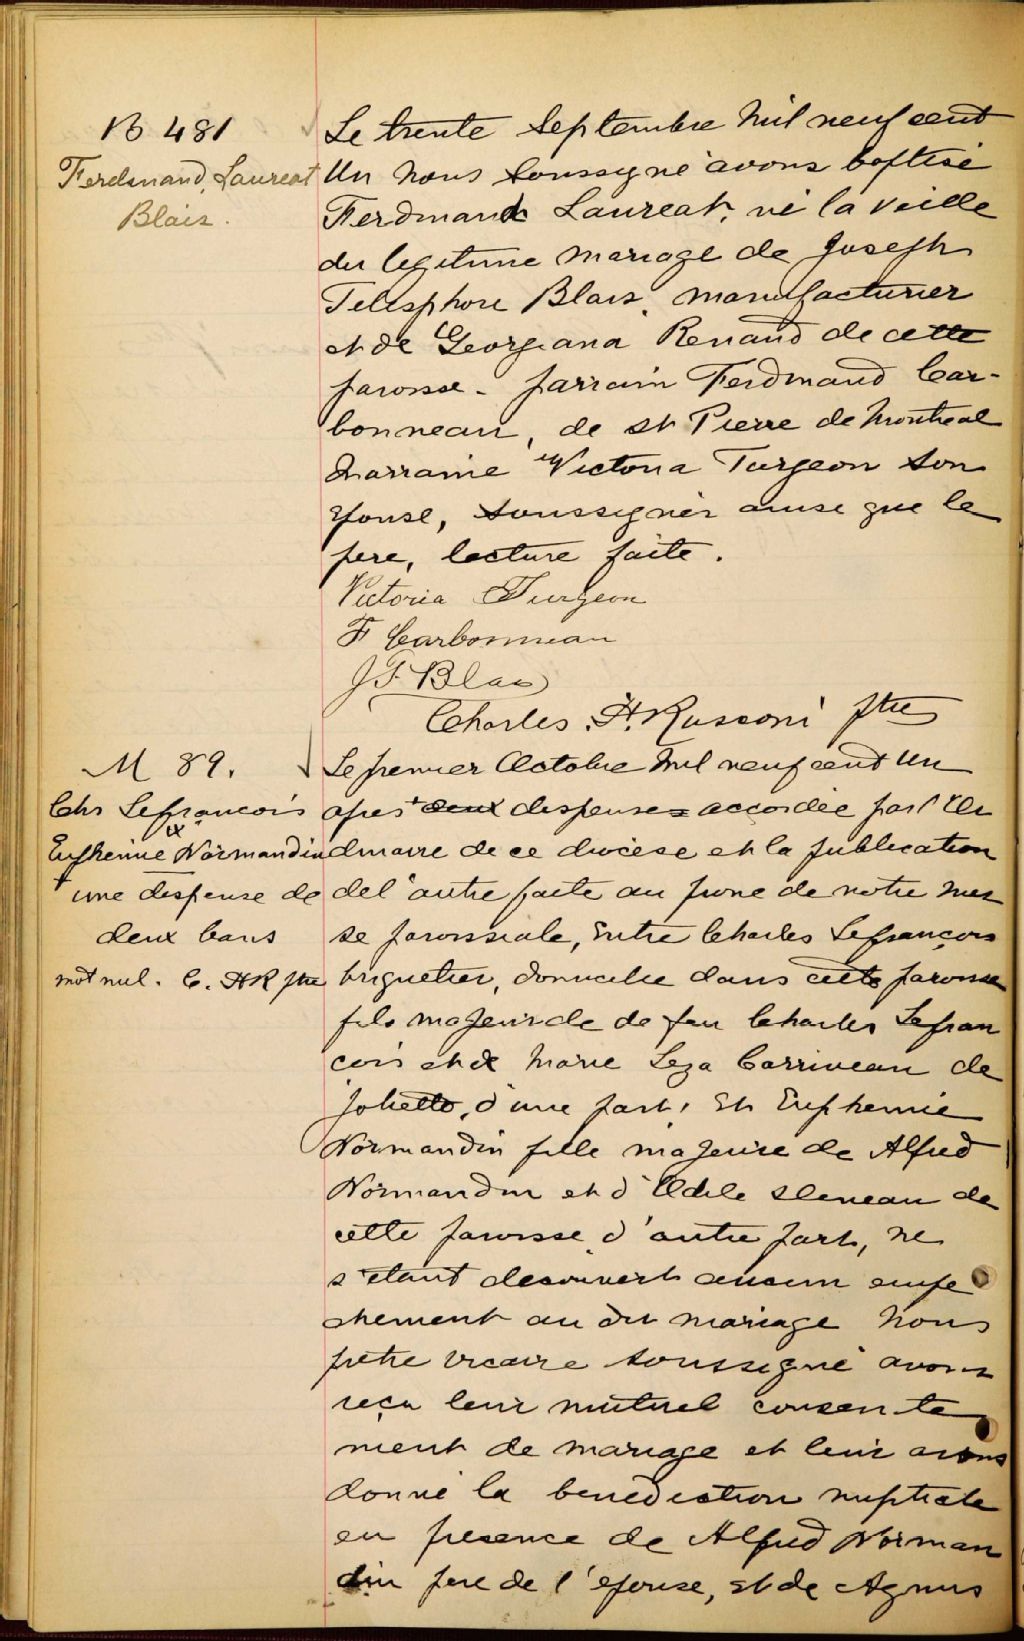 B 481
Ferdinand, Laureat
Blais.
Le trente Septembre Mil neuf cent
Un Nous Soussigné avons baptisé
Ferdinand Laureat, né la veille
du legitime mariage de Joseph
Telesphore Blais manufacturier
et de Georgeana Renaud de cette
paroisse - parrain Ferdinand Car-
bonneau, de St Pierre de Montreal
Marraine Victoria Turgeon son
epouse, soussignés ainsi que le
pere, lecture faite.
Victoria Turgeon
F Carbonneau
J T Blais
Charles . H. Russoni ptre
M 89.
Chs Lefrancois
et
Euphemie Normandin
+ une dispense de
deux bans
mot nul. C. H R ptre
Le premier Octobre Mil neuf cent Un
apres + deux dispenses accordée par l'Or
dinaire de ce diocèse et la publication
de l'autre faite au prone de notre mes
se paroissiale, Entre Charles Lefrançois
briquetier, domicilie dans cette paroisse
fils majeur de de feu Charles Lefran
cois et de Marie Leza Carriveau de
Joliette, d'une part, Et Euphemie
Normandin fille majeure de Alfred
Normandin et d'Odile de
cette paroisse d'autre part, ne
s'etant decouvert aucun empe
chement au dit mariage Nous
pretre vicaire soussigné avons
reçu leur mutuel consente
ment de mariage et leur avons
donné la benediction nuptiale
en presence de Alfred Norman
din pere de l'epouse, et de Agnus